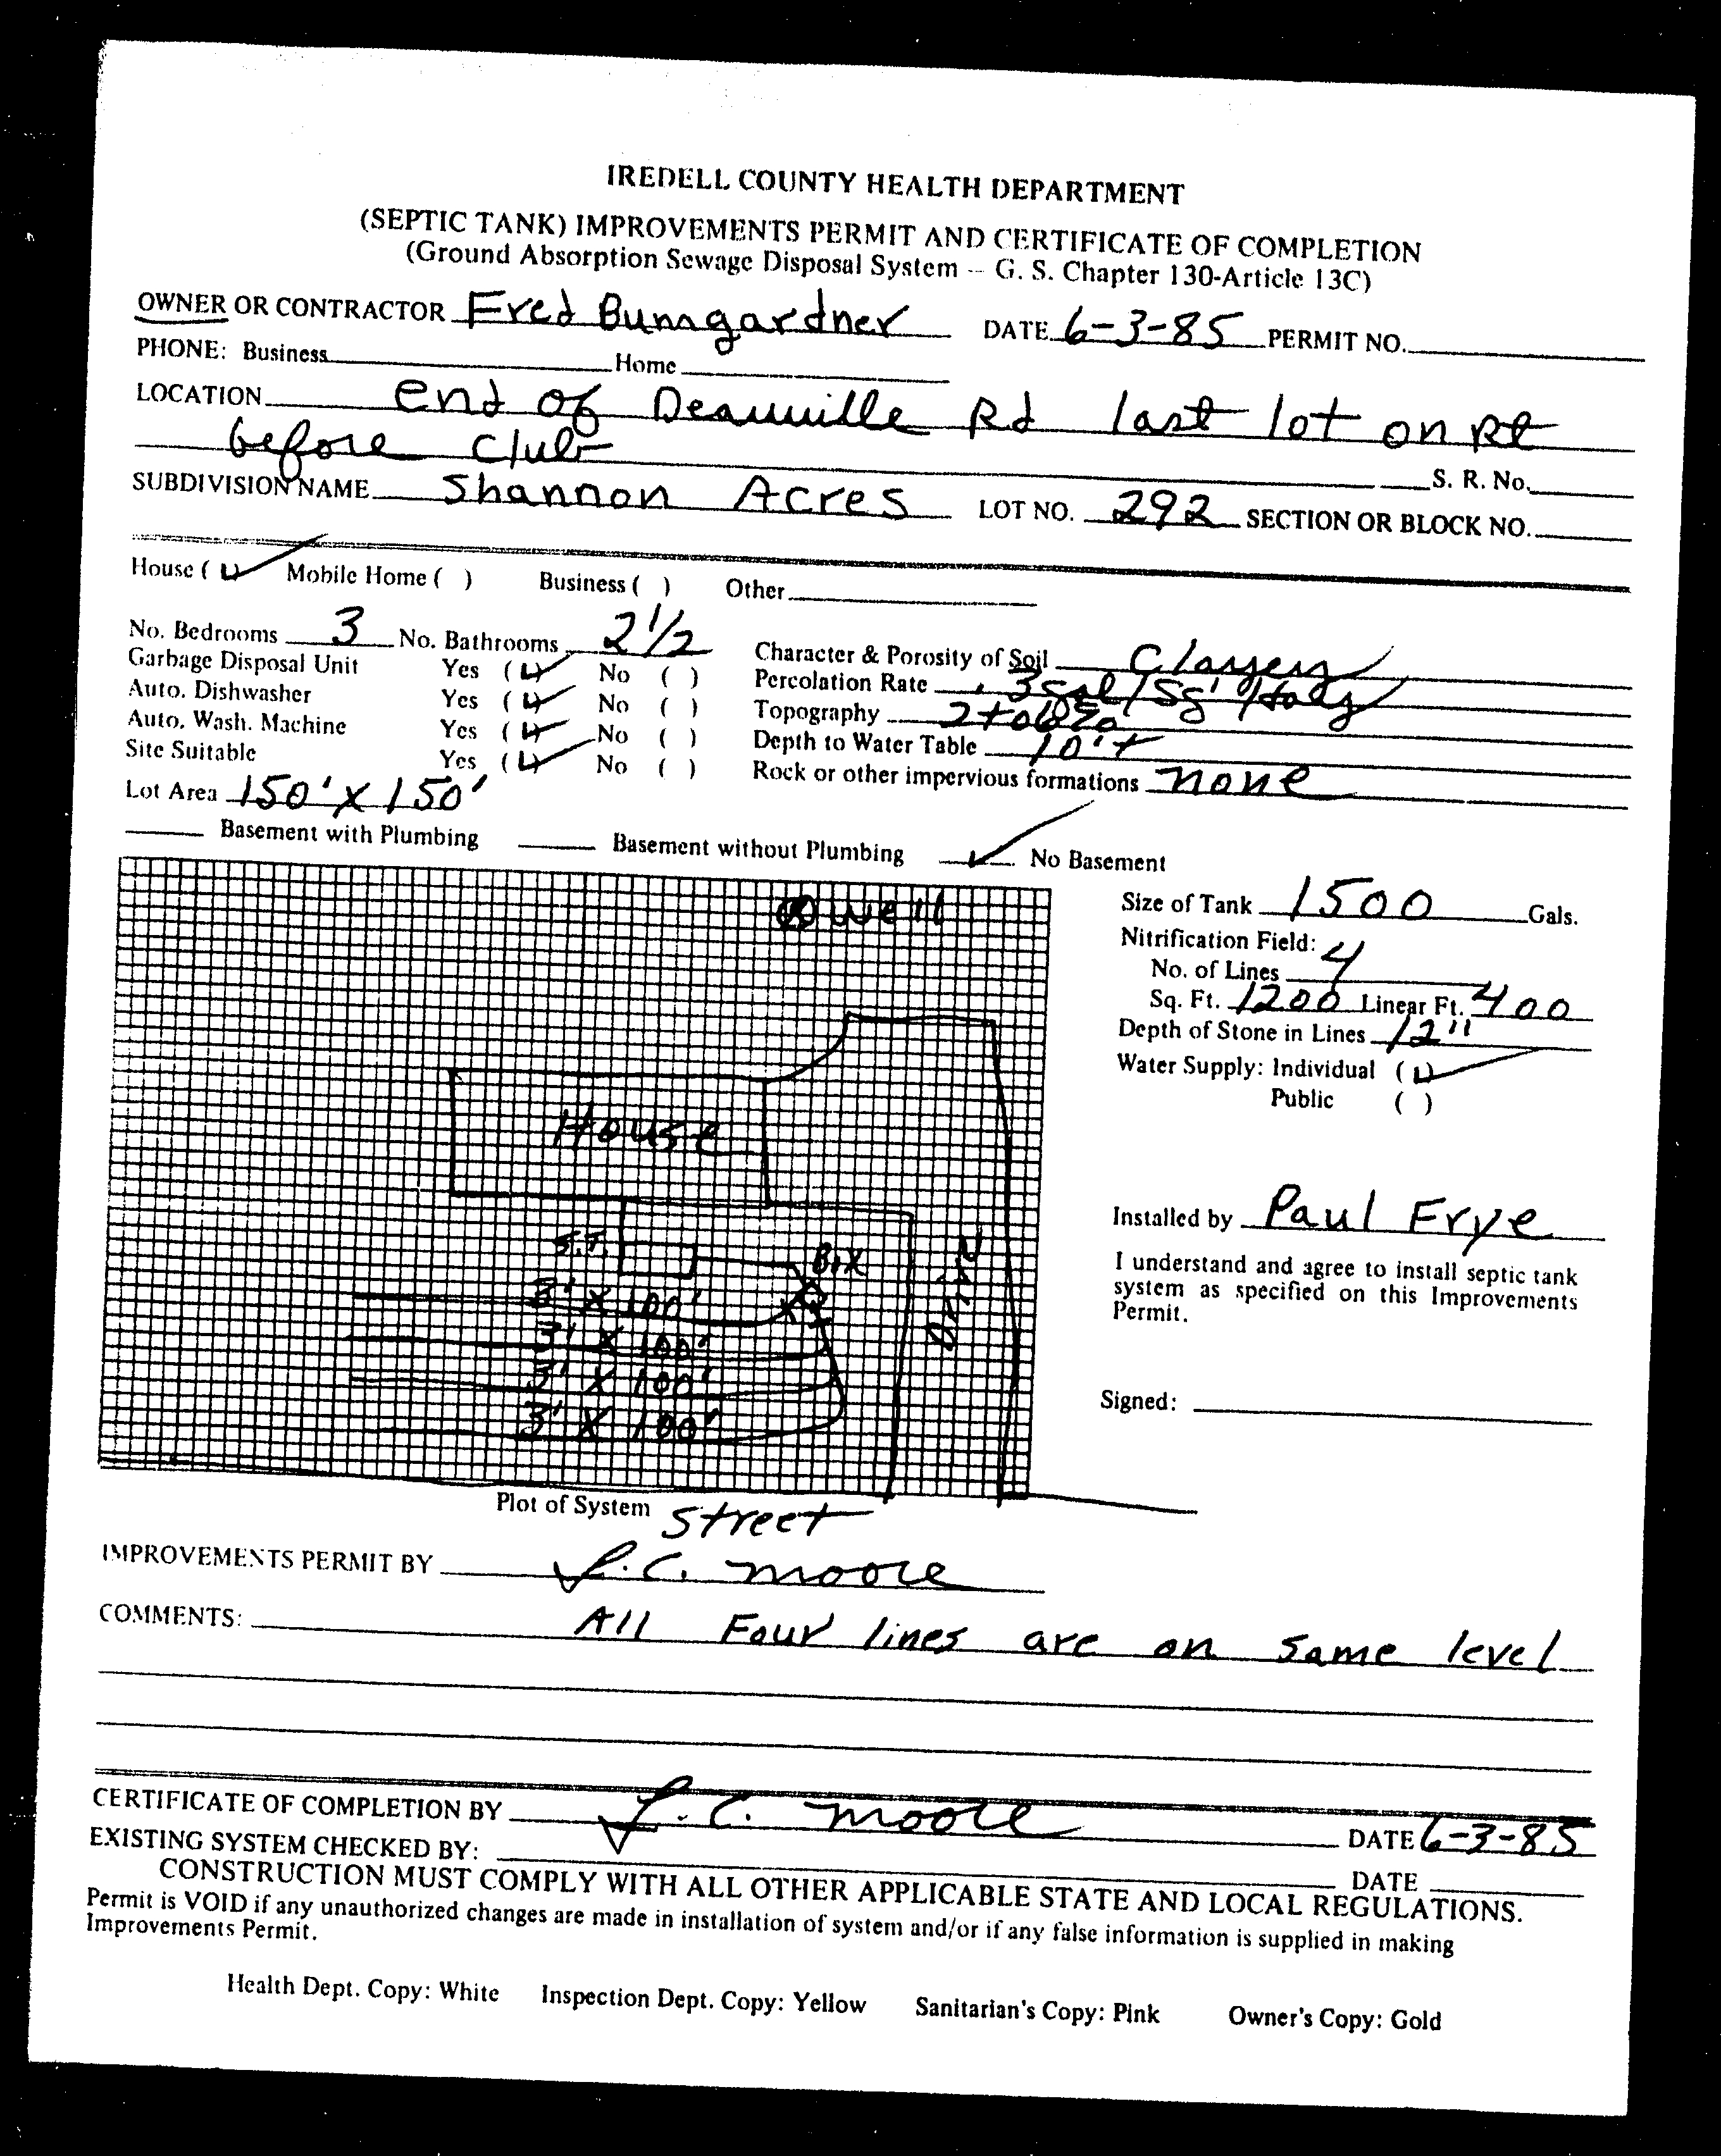 IREDELL COUNTY HEALTH DEPARTMENT
(SEPTIC TANK) IMPROVEMENTS PERMIT AND CERTIFICATE OF COMPLETION
(Ground Absorption Sewage Disposal System -- G. S. Chapter 130-Article 13C)
OWNER OR CONTRACTOR Fred Bumgardner DATE 6-3-85 PERMIT NO.
PHONE: Business Home
LOCATION end of Deauville Rd last lot on Rt
before club
S. R. No.
SUBDIVISION NAME Shannon Acres LOT NO. 292 SECTION OR BLOCK NO.
House (✓) Mobile Home ( ) Business ( ) Other
No. Bedrooms 3 No. Bathrooms 2 1/2
Garbage Disposal Unit Yes (✓) No ( )
Auto. Dishwasher Yes (✓) No ( )
Auto. Wash. Machine Yes (✓) No ( )
Site Suitable Yes (✓) No ( )
Lot Area 150' X 150'
Character & Porosity of Soil Clayey
Percolation Rate .3 gal/sq'/day
Topography 2 to 6%
Depth to Water Table 10'+
Rock or other impervious formations none
Basement with Plumbing Basement without Plumbing ✓ No Basement
well
House
S.T.
Box
3' X 100'
3' X 100'
3' X 100'
3' X 100'
Drive
Size of Tank 1500 Gals.
Nitrification Field:
No. of Lines 4
Sq. Ft. 1200 Linear Ft. 400
Depth of Stone in Lines 12"
Water Supply: Individual (✓)
Public ( )
Installed by Paul Frye
I understand and agree to install septic tank
system as specified on this Improvements
Permit.
Signed:
Plot of System Street
IMPROVEMENTS PERMIT BY J.C. Moore
COMMENTS: All Four lines are on same level
CERTIFICATE OF COMPLETION BY J.C. Moore DATE 6-3-85
EXISTING SYSTEM CHECKED BY: DATE
CONSTRUCTION MUST COMPLY WITH ALL OTHER APPLICABLE STATE AND LOCAL REGULATIONS.
Permit is VOID if any unauthorized changes are made in installation of system and/or if any false information is supplied in making
Improvements Permit.
Health Dept. Copy: White Inspection Dept. Copy: Yellow Sanitarian's Copy: Pink Owner's Copy: Gold